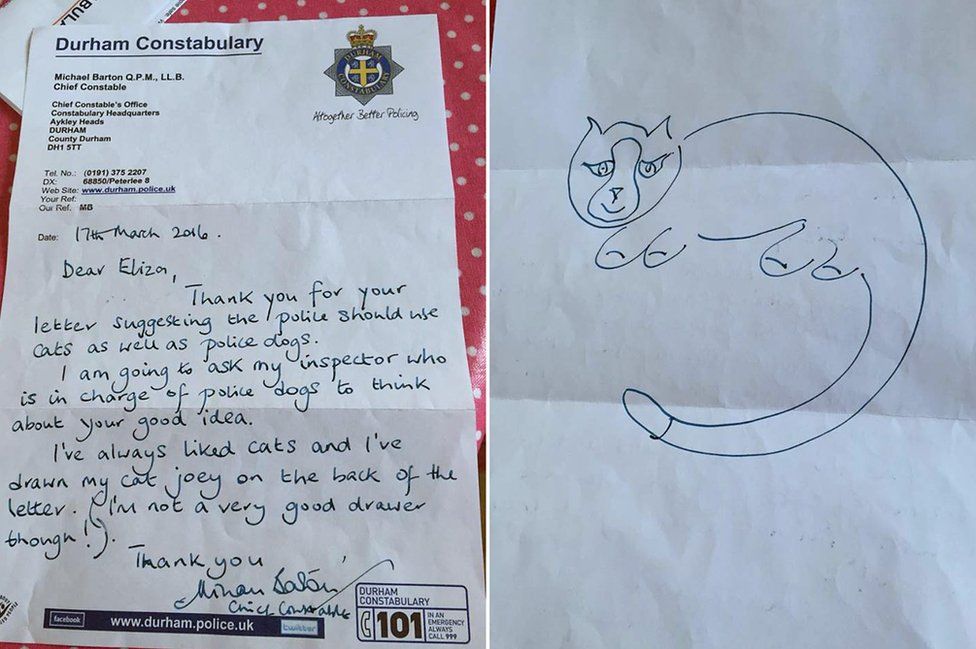 Durham Constabulary
Michael Barton Q.P.M., LL.B.
Chief Constable
DURHAM
CONSTABULARY
Altogether Better Policing
Chief Constable's Office
Constabulary Headquarters
Aykley Heads
DURHAM
County Durham
DH1 5TT
Tel. No.: (0191) 375 2207
DX: 68850/Peterlee 8
Web Site: www.durham.police.uk
Your Ref:
Our Ref: MB
Date: 17th March 2016.
Dear Eliza,
Thank you for your
letter suggesting the police should use
cats as well as police dogs.
I am going to ask my inspector who
is in charge of police dogs to think
about your good idea.
I've always liked cats and I've
drawn my cat joey on the back of the
letter. (I'm not a very good drawer
though!).
Thank you
Chief Constable
facebook www.durham.police.uk twitter
DURHAM
CONSTABULARY
101 IN AN
EMERGENCY
ALWAYS
CALL 999